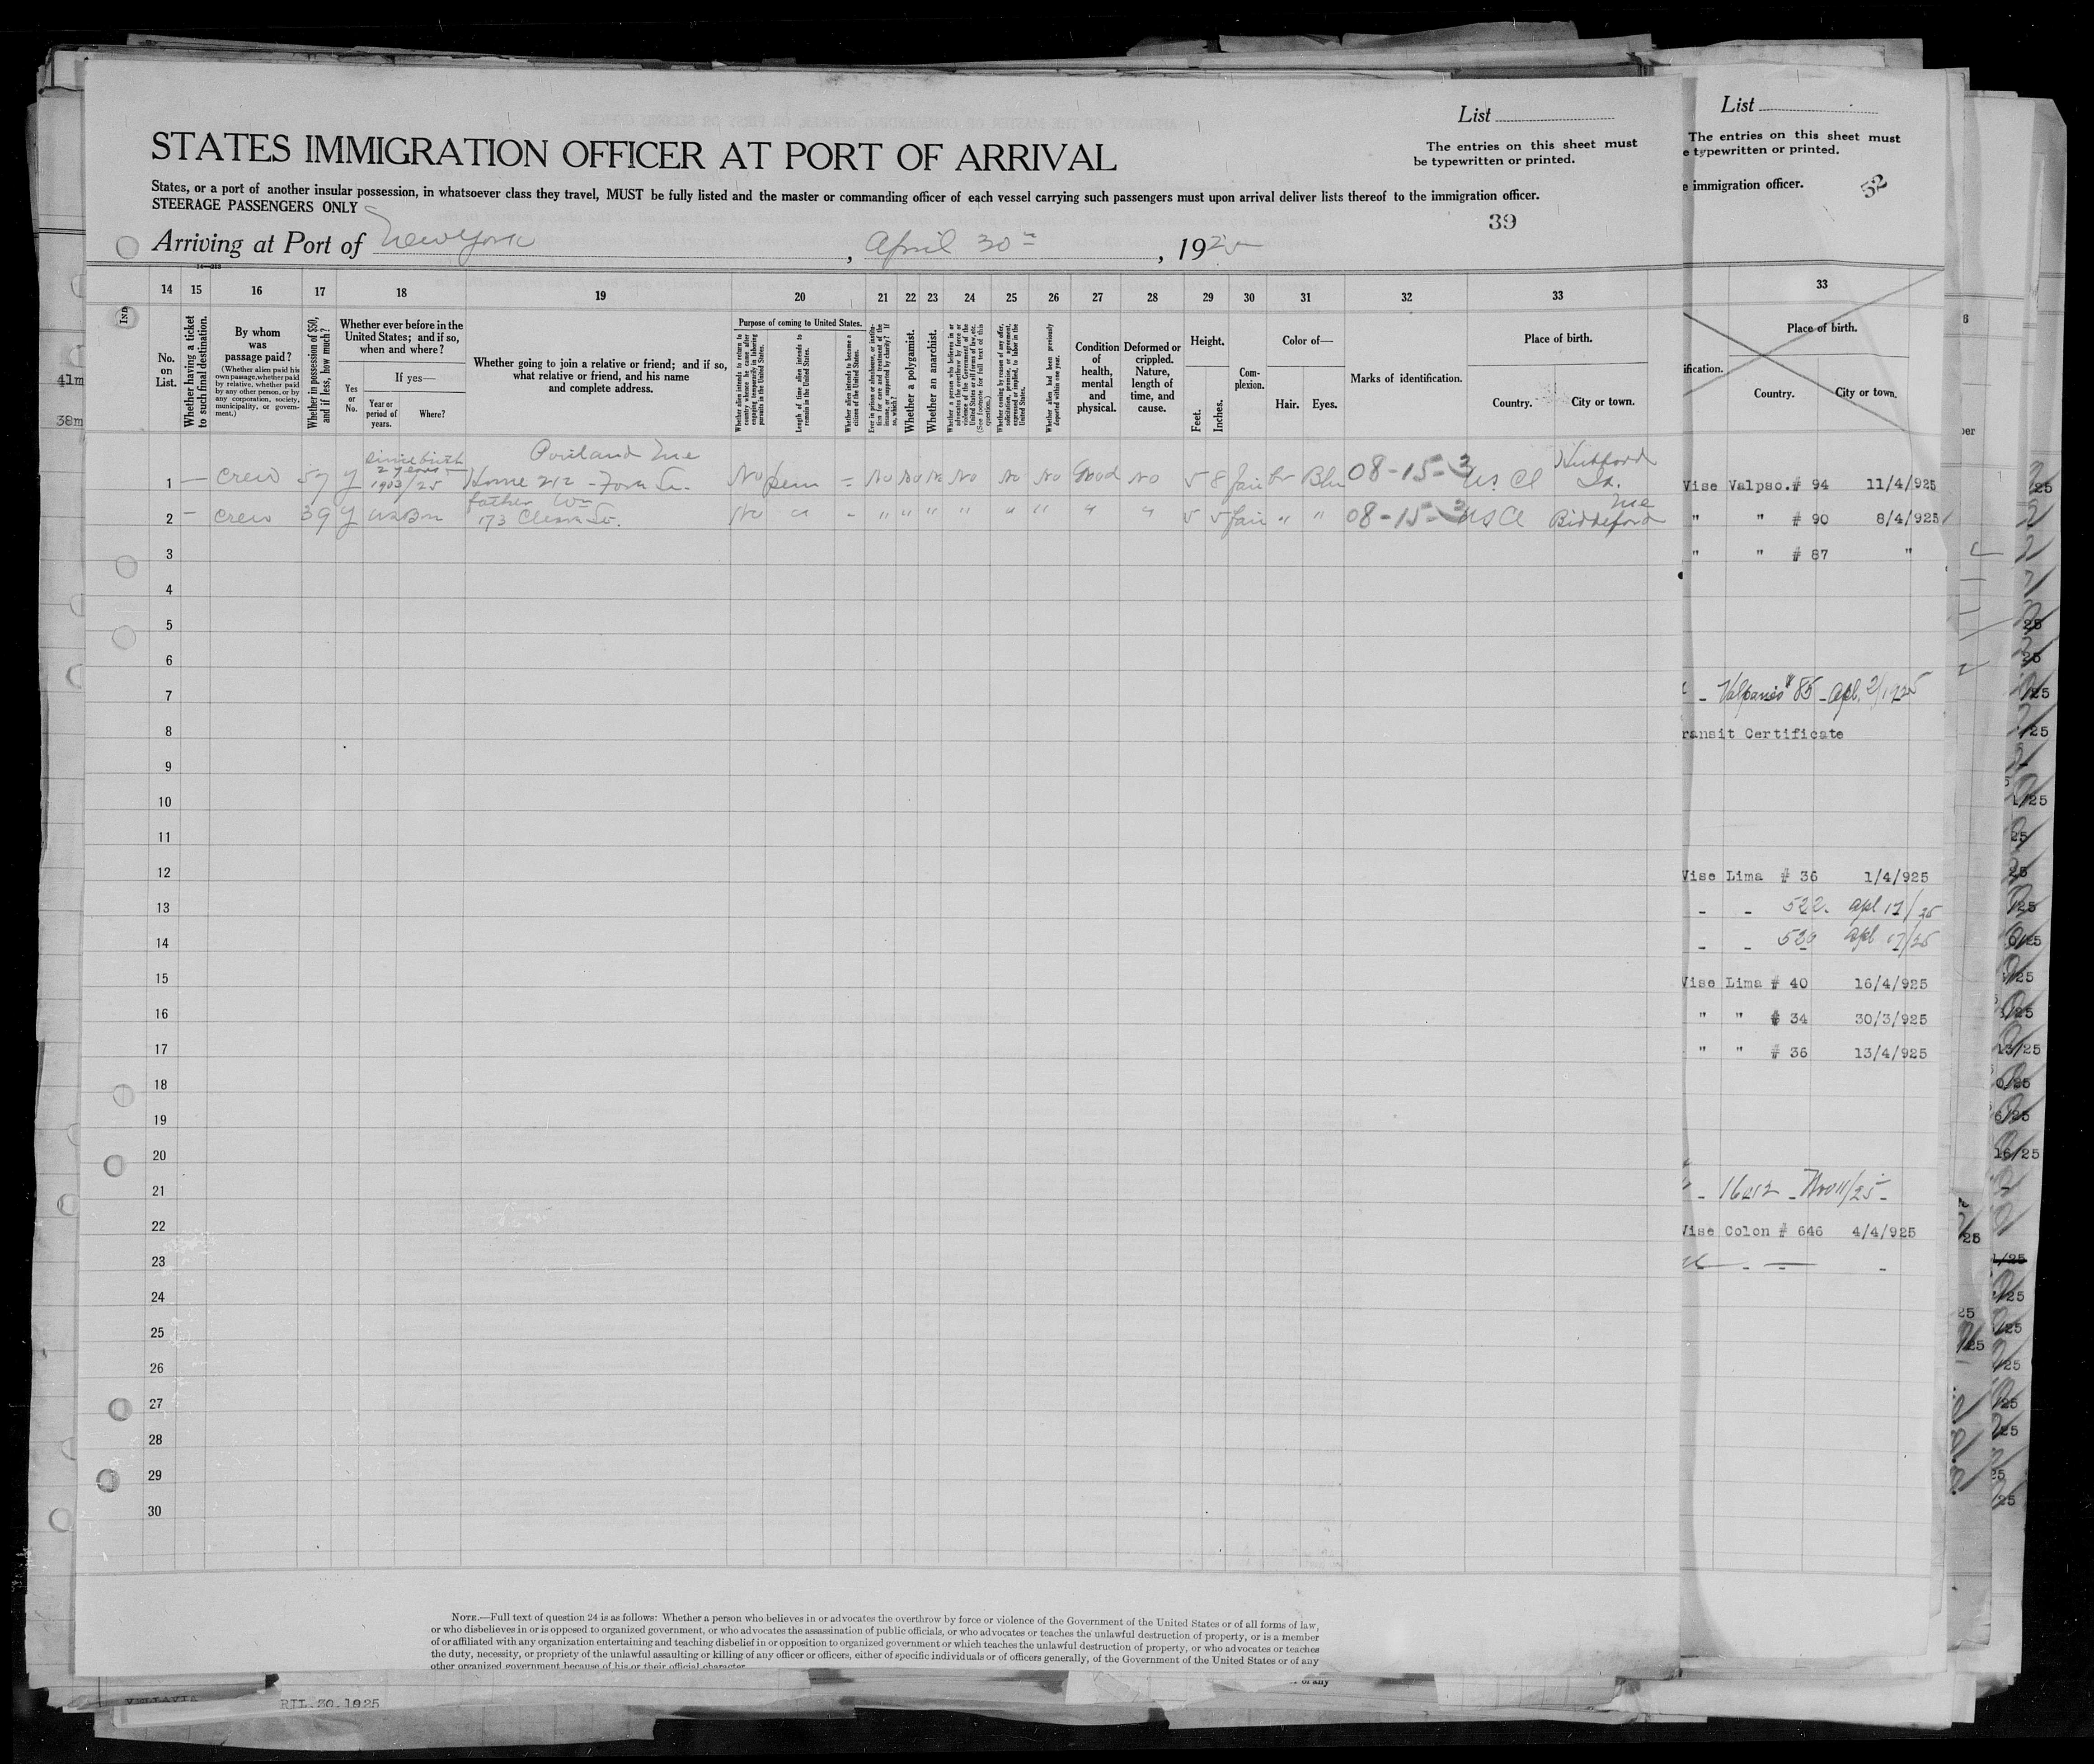 List
The entries on this sheet must
be typewritten or printed.
STATES IMMIGRATION OFFICER AT PORT OF ARRIVAL
States, or a port of another insular possession, in whatsoever class they travel, MUST be fully listed and the master or commanding officer of each vessel carrying such passengers must upon arrival deliver lists thereof to the immigration officer.
STEERAGE PASSENGERS ONLY
39
Arriving at Port of New York, April 30th, 1925
14 15 16 17 18 19 20 21 22 23 24 25 26 27 28 29 30 31 32 33
No. on List.
Whether having a ticket to such final destination.
By whom was passage paid?
(Whether alien paid his own passage, whether paid by relative, whether paid by any other person, or by any corporation, society, municipality, or government.)
Whether in possession of $50, and if less, how much?
Whether ever before in the United States; and if so, when and where?
Yes or No.
If yes—
Year or period of years.
Where?
Whether going to join a relative or friend; and if so, what relative or friend, and his name and complete address.
Purpose of coming to United States.
Whether alien intends to return to country whence he came after engaging temporarily in laboring pursuits in the United States.
Length of time alien intends to remain in the United States.
Whether alien intends to become a citizen of the United States.
Ever in prison or almshouse, or institution for care and treatment of the insane, or supported by charity? If so, which?
Whether a polygamist.
Whether an anarchist.
Whether a person who believes in or advocates the overthrow by force or violence of the Government of the United States or all forms of law, etc. (See footnote for full text of this question.)
Whether coming by reason of any offer, solicitation, promise, or agreement, expressed or implied, to labor in the United States.
Whether alien had been previously deported within one year.
Condition of health, mental and physical.
Deformed or crippled. Nature, length of time, and cause.
Height.
Feet.
Inches.
Complexion.
Color of—
Hair.
Eyes.
Marks of identification.
Place of birth.
Country.
City or town.
Portland Me
since birth
2 years
1 — crew 57 y 1903/25 Home 212 - No perm = No No No No No No Good No 5 8 fair br Blu 08-15-3 US Cl
father Wm
2 - crew 39 y US Bn 173 No " - " " " " " " " " 5 5 fair " " 08-15-3 US Cl Biddeford Me
3
4
5
6
7
8
9
10
11
12
13
14
15
16
17
18
19
20
21
22
23
24
25
26
27
28
29
30
NOTE.—Full text of question 24 is as follows: Whether a person who believes in or advocates the overthrow by force or violence of the Government of the United States or of all forms of law,
or who disbelieves in or is opposed to organized government, or who advocates the assassination of public officials, or who advocates or teaches the unlawful destruction of property, or is a member
of or affiliated with any organization entertaining and teaching disbelief in or opposition to organized government or which teaches the unlawful destruction of property, or who advocates or teaches
the duty, necessity, or propriety of the unlawful assaulting or killing of any officer or officers, either of specific individuals or of officers generally, of the Government of the United States or of any
other organized government because of his or their official character
List
The entries on this sheet must
e typewritten or printed.
e immigration officer.
52
33
Place of birth.
ification.
Country.
City or town.
Vise Valpso.# 94 11/4/925
" " # 90 8/4/925
" " # 87 "
- Valparaiso # 85 - Apl. 2/1925
ransit Certificate
Vise Lima # 36 1/4/925
- - 522. apl 17/25
- - 520 apl 17/25
Vise Lima # 40 16/4/925
" " # 34 30/3/925
" " # 36 13/4/925
Vise Colon # 646 4/4/925
41m
38m
RIL.30.1925